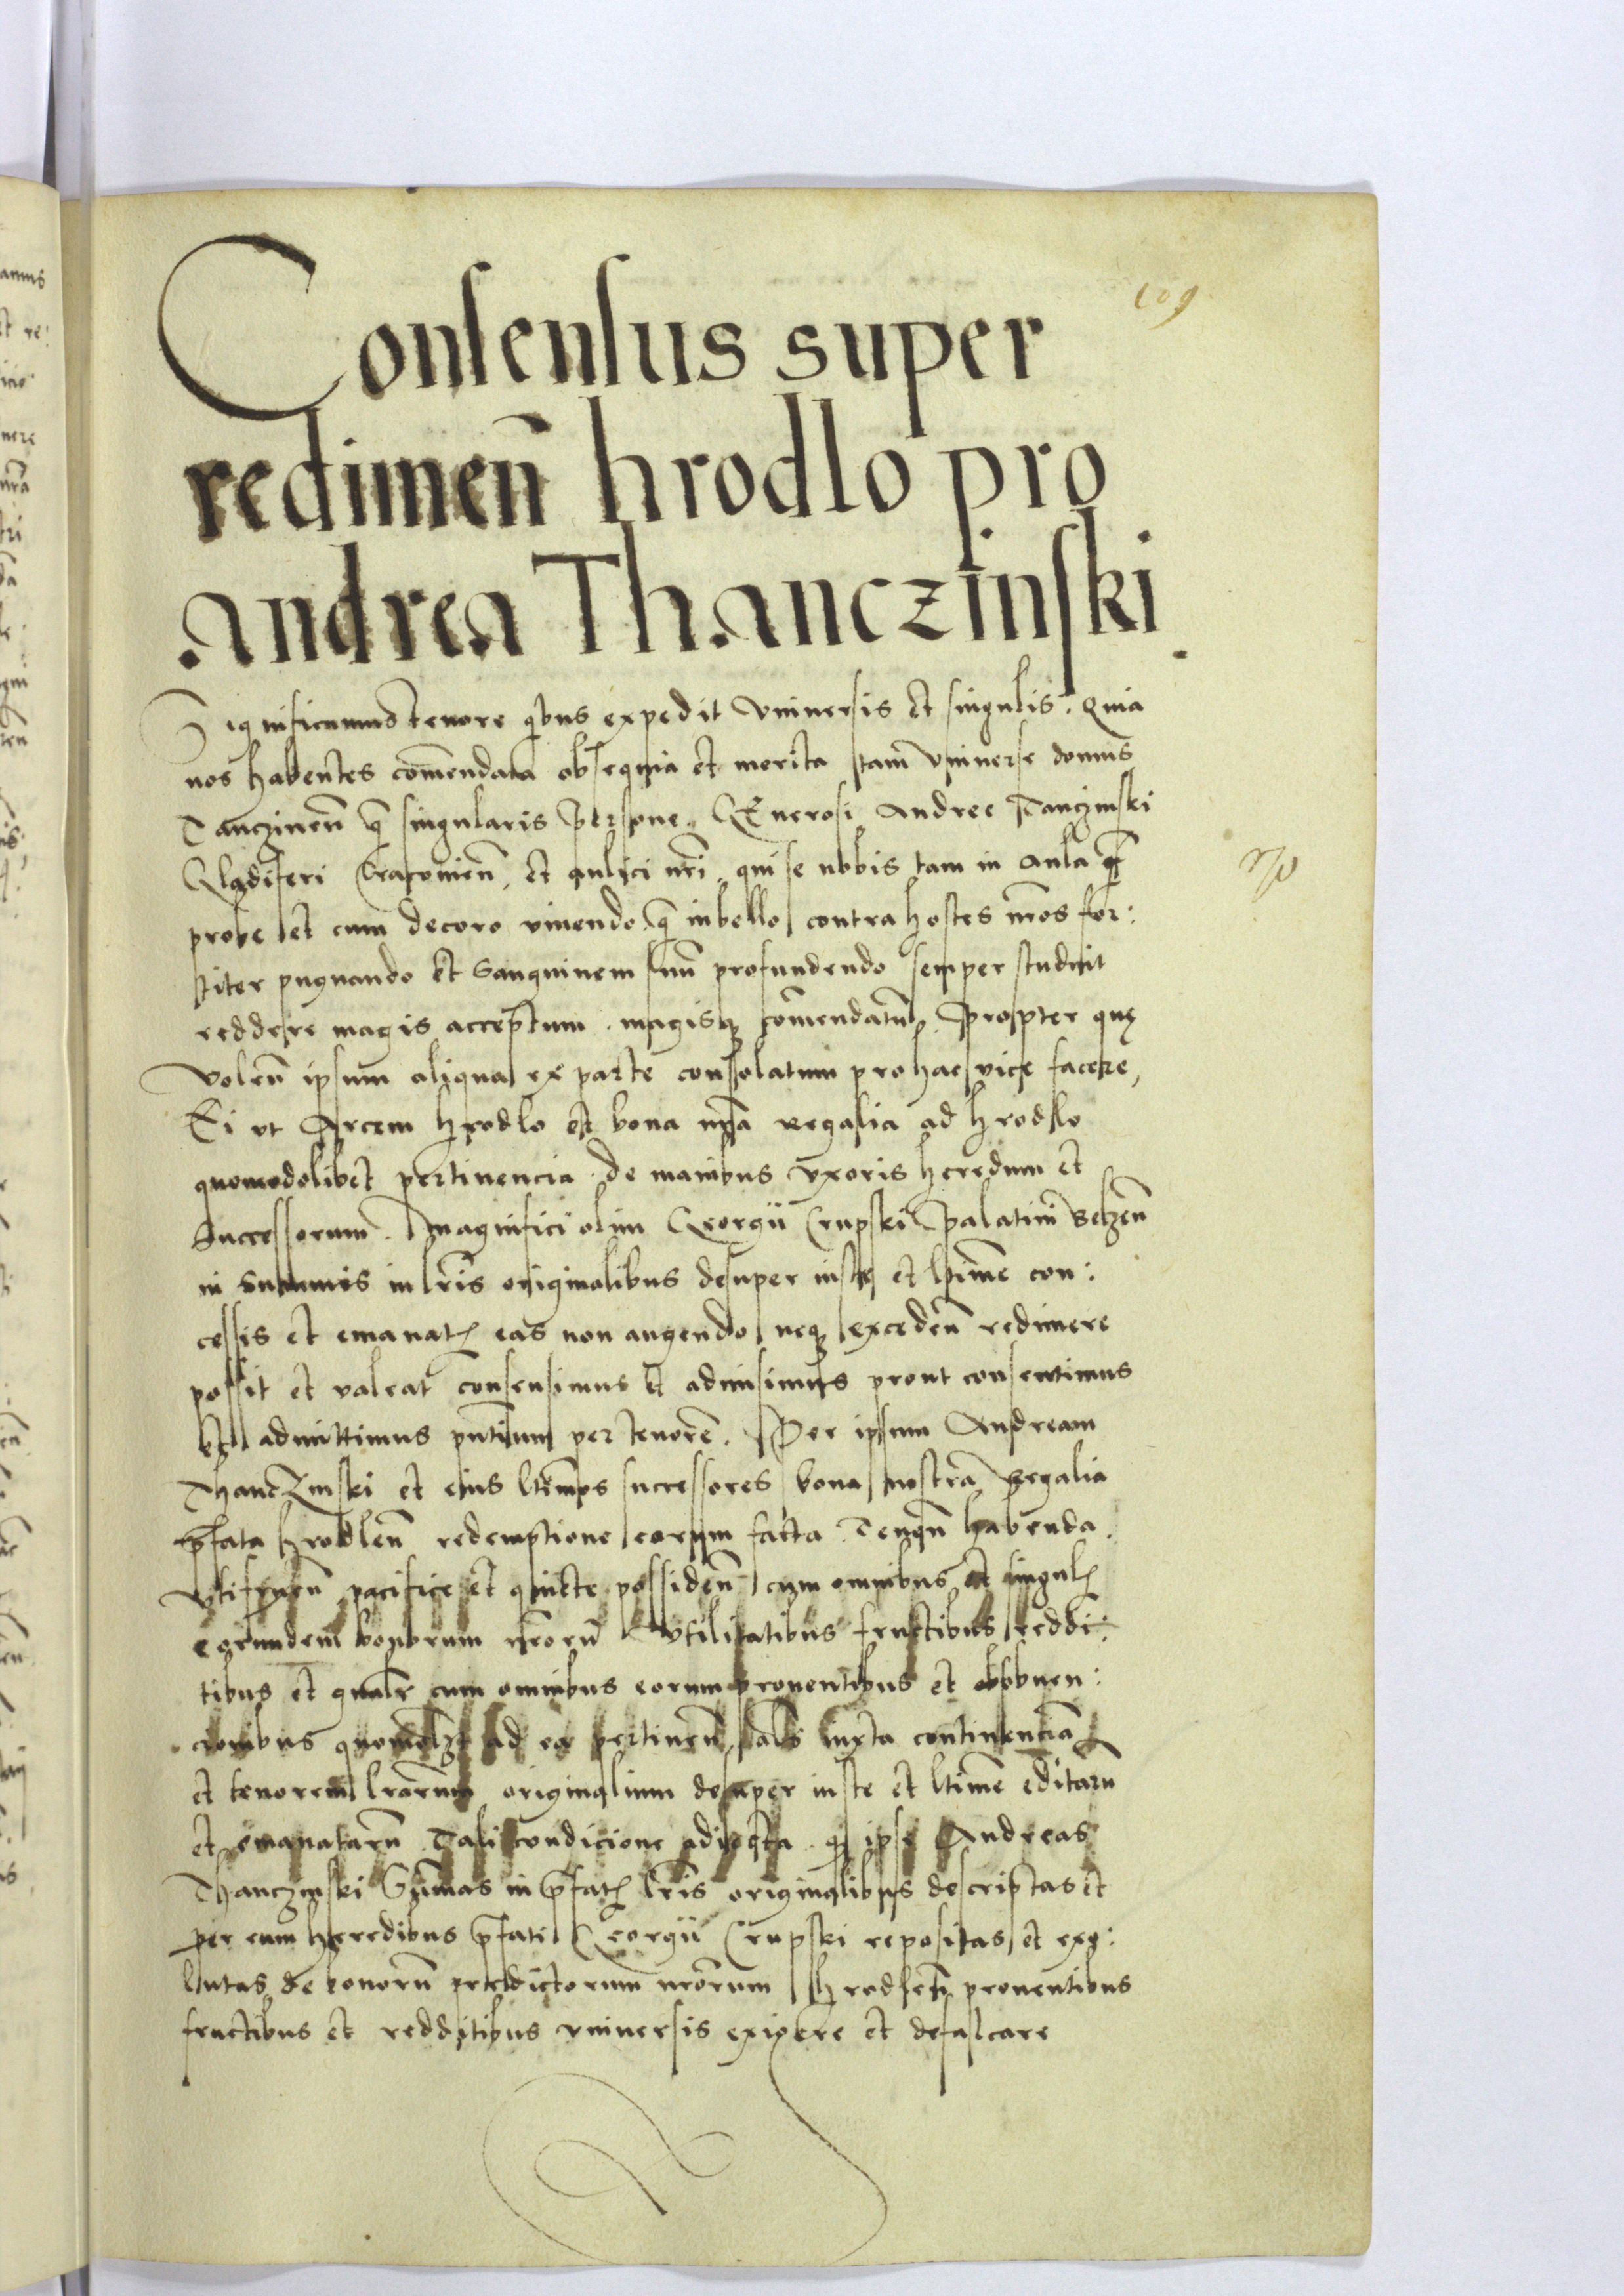 109
Consensus super
redimeñ hrodlo pro
Andrea Thanczinski
Significamus tenore q̃bus expedit vniuersis et singulis. Quia
nos habentes com̃endata obsequia et merita tam vniuerse domus
Tanczineñ q̃ singularis persone Generosi Andree Tanczinski
Gladiferi Cracouieñ, et aulici nr̃i qui se nobis tam in aula
probe et cum decoro viuendo q̃ in bello contra hostes nr̃os for:
titer pugnando et sanguinem suũ profundendo semper studuit
reddere magis acceptum magisq; com̃endatũ. Propter quę
Voleñ ipsum aliqua ex parte consolatum pro hac vice facere,
Ei vt Arcem hrodlo et bona nr̃a regalia ad hrodlo
quomodolibet pertinencia de manibus vxoris heredum et
Successorum Magnifici olim Georgii Crupski Palatini Belzeñ
in summis in lr̃is originalibus desuper iuste et ltim̃e con:
cessis et emanatꝭ eas non augendo neq; excedeñ redimere
possit et valeat consensimus et admisimus prout consentimus
et admittimus pñtium per tenorẽ. Per ipsum Andream
Thanczinski et eius ltim̃os successores bona nostra Regalia
p̃fata hrodleñ redemptione eorum facta Teneñ habenda
vtifrueñ pacifice et quiete possideñ cum omnibus et singulꝭ
eorundem bonorum nr̃orũ vtilitatibus fructibus reddi:
tibus et gnal̃r cum omnibus eorum prouentibus et obuen:
cionibus quomodolȝ ad ea pertineñ, iuxta continenciã
et tenorem lr̃arum originalium desuper iuste et ltim̃e editarũ
et emanatarũ Tali condicione adiecta q; ipse Andreas
Thanczinski Sum̃as in p̃fatꝭ lr̃is originalibus descriptas et
per eum heredibus p̃fati Georgii Crupski repositas et exo:
lutas de bonorũ predictorum nr̃orum hrodleñ prouentibus
fructibus et redditibus vniuersis exigere et defalcare